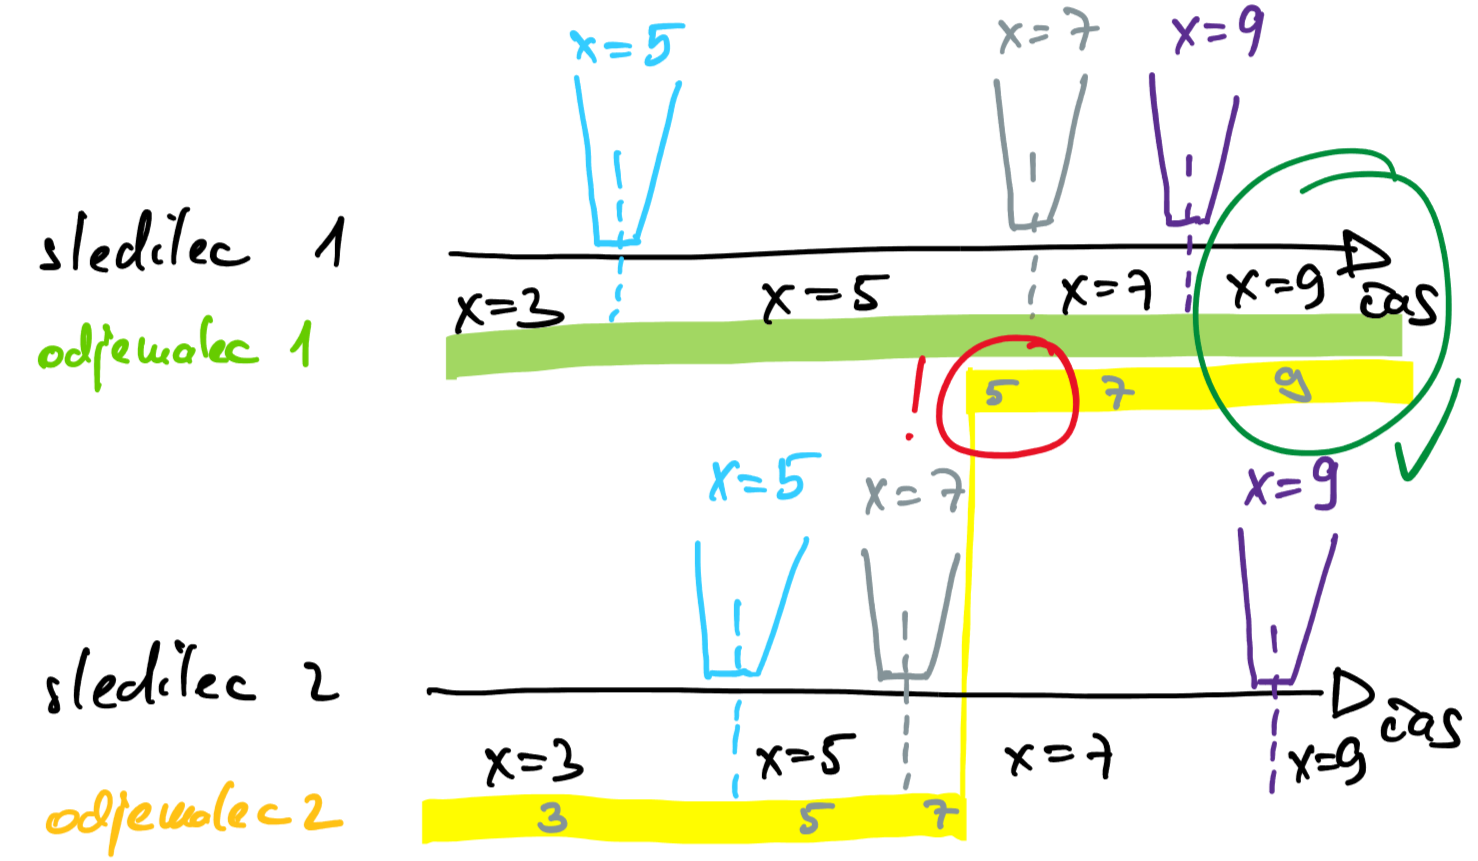 x=5 x=7 x=9
sledilec 1
x=3 x=5 x=7 x=9 čas
odjemalec 1
! 5 7 9
x=5 x=7 x=9
sledilec 2
čas
x=3 x=5 x=7 x=9
odjemalec 2
3 5 7